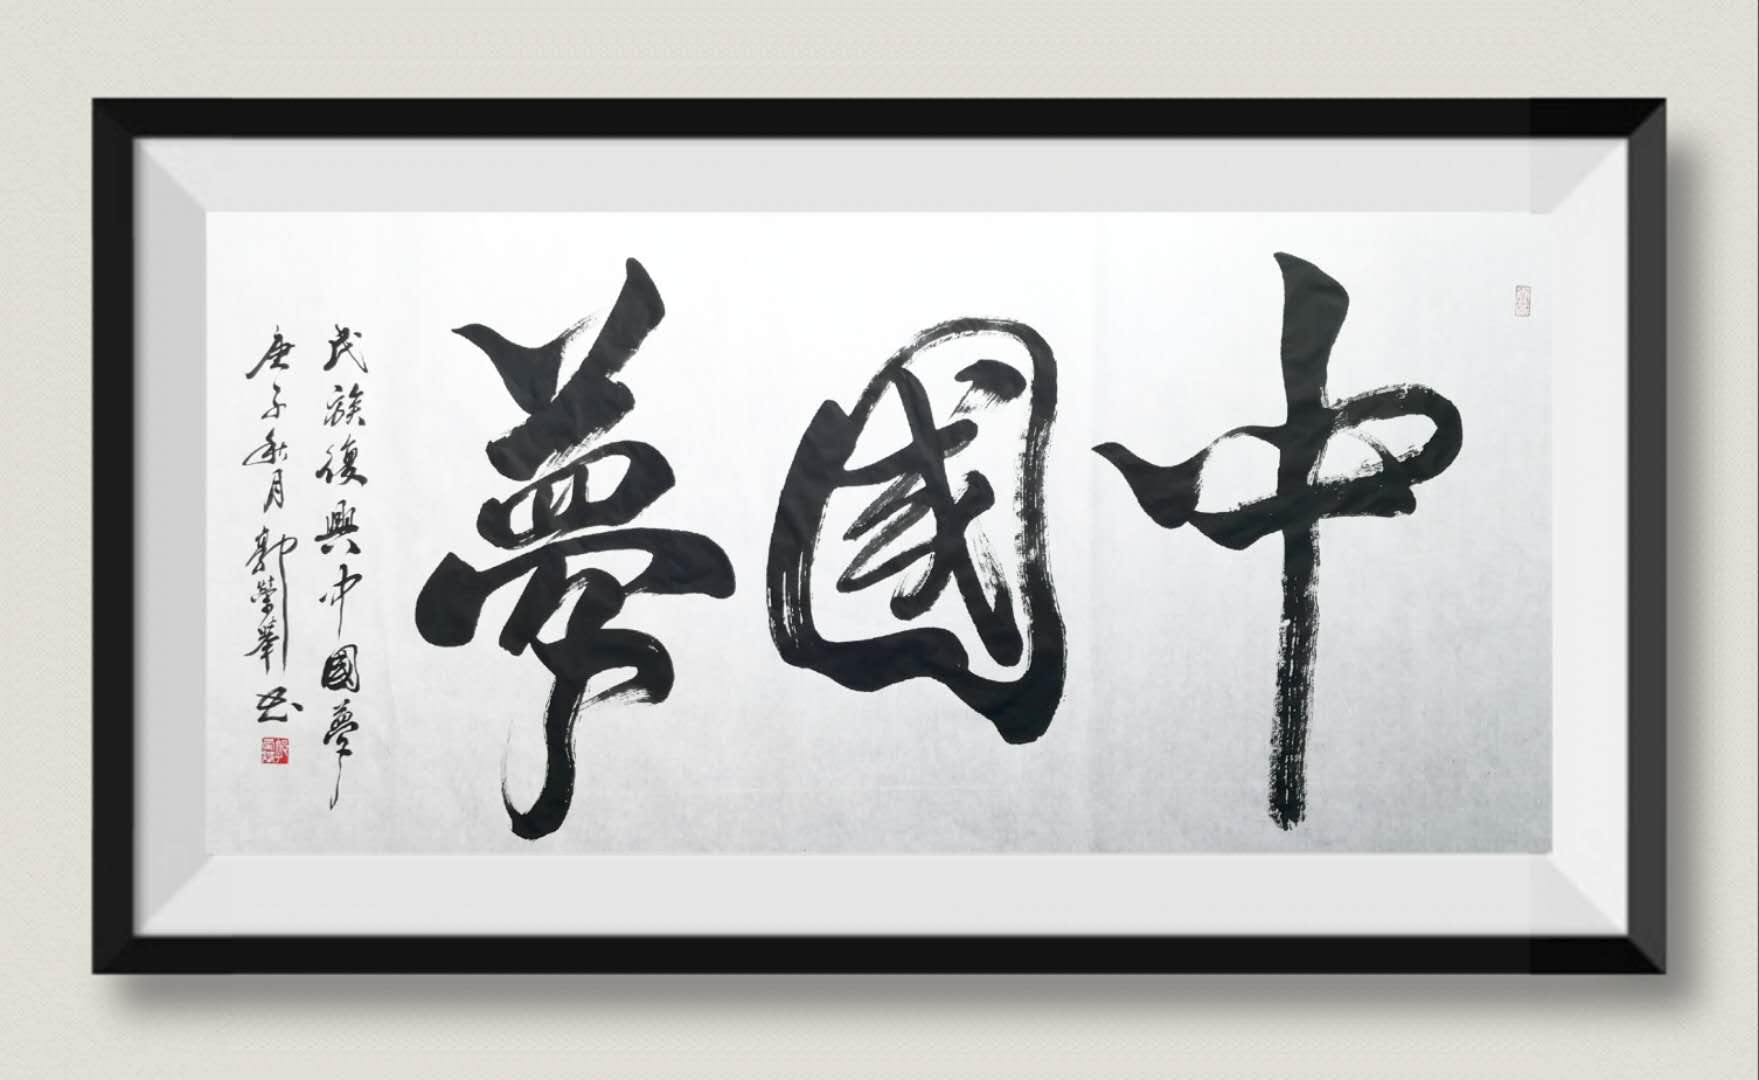 中國夢
民族復興中國夢
庚子秋月郭榮華書